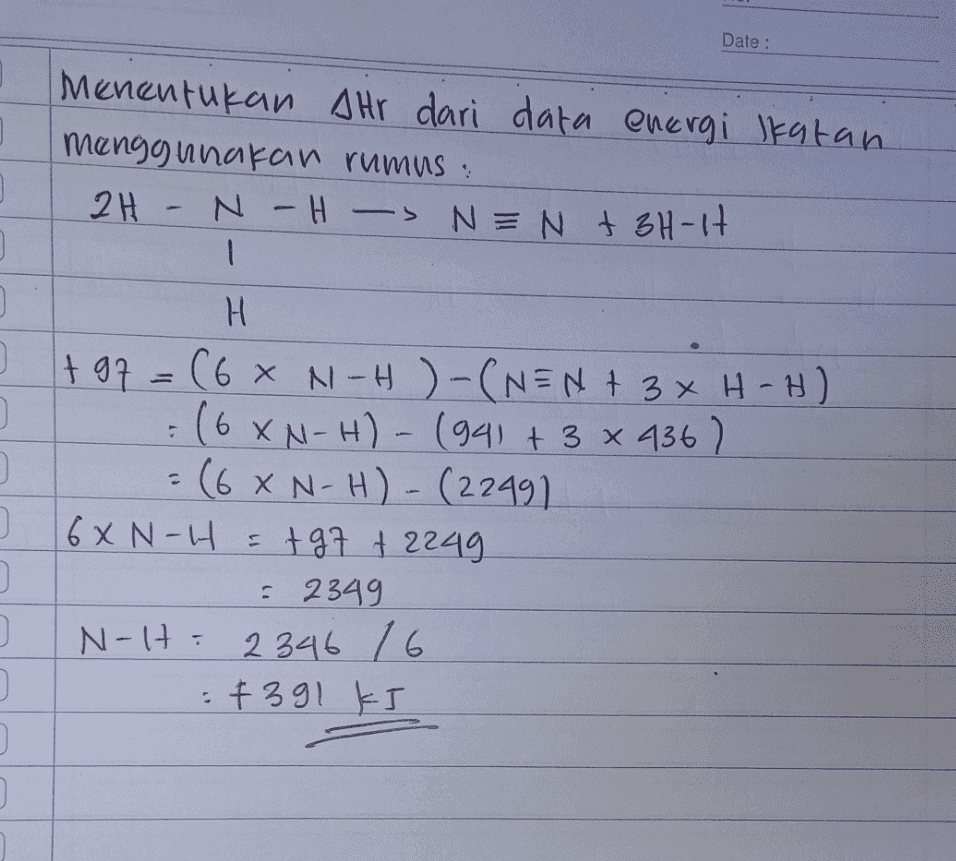 Date :
Menentukan ΔHr dari data energi Ikatan
menggunakan rumus :
2H - N - H —> N ≡ N + 3H-H
|
H
+ 97 = (6 x N-H ) - (N≡N + 3 x H-H)
= (6 x N-H) - (941 + 3 x 436 )
= (6 x N-H) - (2249)
6 x N-H = +97 + 2249
= 2349
N-H = 2346 / 6
= +391 kJ